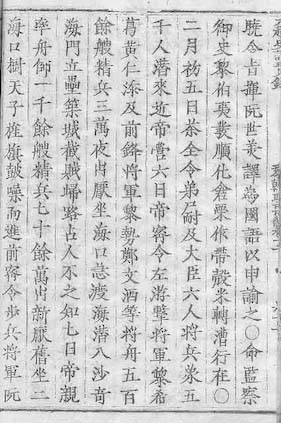 曉令旨揮阮世美譯為國語以申諭之○命監察
御史黎伯夷裝順化倉粟依帶殼米轉漕行在○
二月初五日茶全令弟尸耐及大臣六人將兵象五
千人潛來近帝營六日帝密令左游擊將軍黎希
葛黃仁添及前鋒將軍黎勢鄭文洒等將舟五百
餘艘精兵三萬夜出厭坐海口急渡海潛入沙奇
海門立壘築城截賊歸路占人不之知七日帝親
率舟師一千餘艘精兵七十餘萬出新厭舊坐二
海口樹天子旌旗鼓噪而進前密令步兵將軍阮